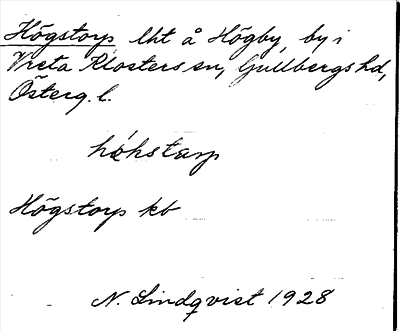 Högstorp lht å Högby, by i
Vreta Klosters sn, Gullbergs hd,
Österg. l.
hǿkstarp
Högstorp kb
N. Lindqvist 1928